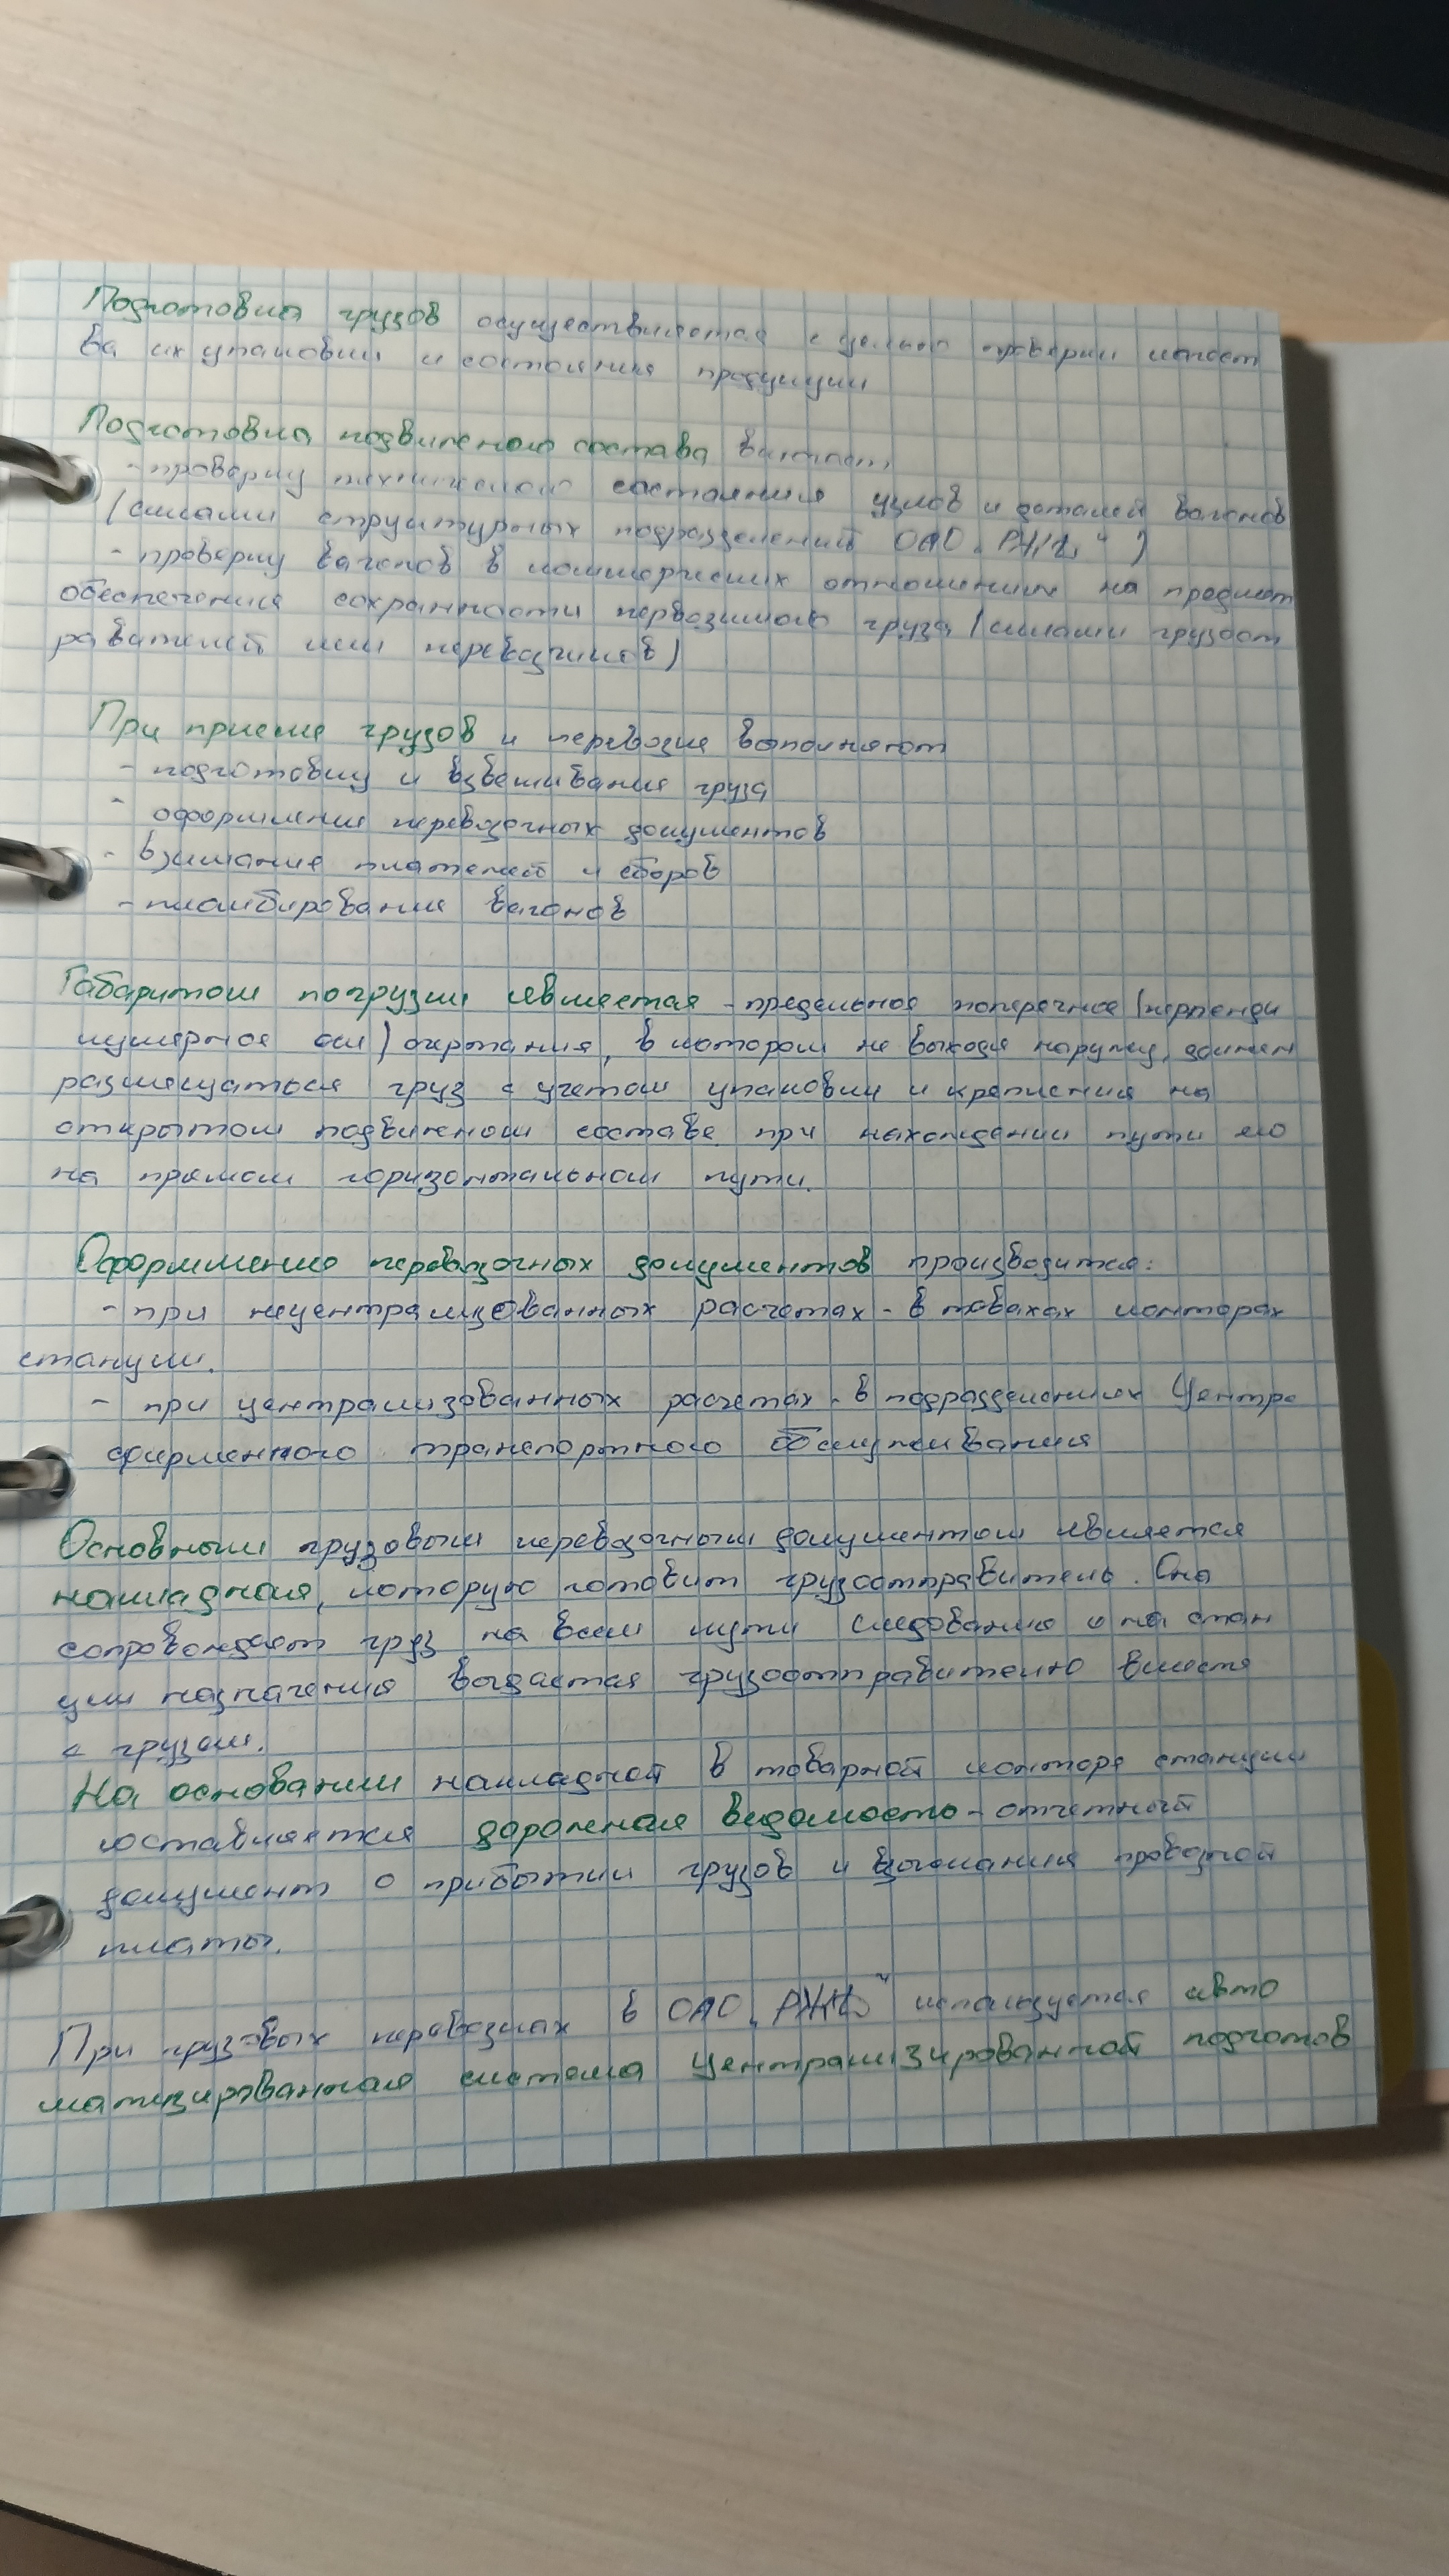 Подготовка грузов осуществляется с целью проверки качест
ва их упаковки и состояния продукции
Подготовка подвижного состава включает
- проверку технического состояния узлов и деталей вагонов
(силами структурных подразделений ОАО „РЖД")
- проверку вагонов в коммерческих отношениях на предмет
обеспечения сохранности перевозимого груза (силами грузоот
равителей или перевозчиков)
При приеме грузов и перевозке выполняют
- подготовку и взвешивания груза
- оформление перевозочных документов
- взимания платежей и сборов
- пломбирование вагонов
Габаритом погрузки является - предельное поперечное (перпенди
кулярное оси) очертания, в котором не выходя наружу, должен
размещаться груз с учетом упаковки и крепления на
открытом подвижном составе при нахождении пути его
на прямом горизонтальном пути.
Оформление перевозочных документов производится:
- при нецентрализованных расчетах - в товахах конторах
станции.
- при централизованных расчетах - в подразделениях Центра
фирменного транспортного обслуживания
Основным грузовым перевозочным документом является
накладная, которую готовит грузоотправитель. Она
сопровождает груз на всем пути следования и на стан
ции назначения выдается грузоотправителю вместе
с грузом.
На основании накладной в товарной конторе станции
составляется дорожная ведомость - отчетный
документ о прибытии грузов и взимания провозной
платы.
При грузовых перевозках в ОАО „РЖД" используется авто
матизированная система централизированной подготов